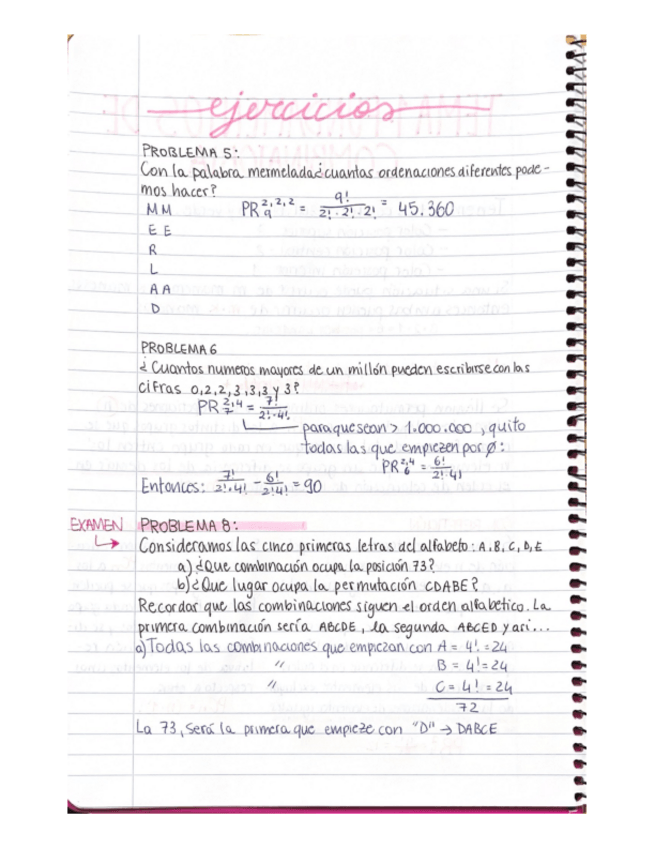 ejercicios
PROBLEMA 5:
Con la palabra mermelada ¿cuantas ordenaciones diferentes pode-
mos hacer?
M M PR₉^2,2,2 = 9!/2!·2!·2! = 45.360
E E
R
L
A A
D
PROBLEMA 6
¿Cuantos numeros mayores de un millón pueden escribirse con las
cifras 0,2,2,3,3,3 y 3?
PR₇^2,4 = 7!/2!·4!
para que sean > 1.000.000, quito
todas las que empiezen por 0:
PR₆^2,4 = 6!/2!·4!
Entonces: 7!/2!·4! - 6!/2!4! = 90
EXAMEN PROBLEMA 8:
Consideramos las cinco primeras letras del alfabeto: A, B, C, D, E
a) ¿Que combinación ocupa la posición 73?
b) ¿Que lugar ocupa la permutación CDABE?
Recordar que las combinaciones siguen el orden alfabetico. La
primera combinación sería ABCDE, la segunda ABCED y asi...
a) Todas las combinaciones que empiezan con A = 4! = 24
" B = 4! = 24
" C = 4! = 24
72
La 73, será la primera que empieze con "D" → DABCE